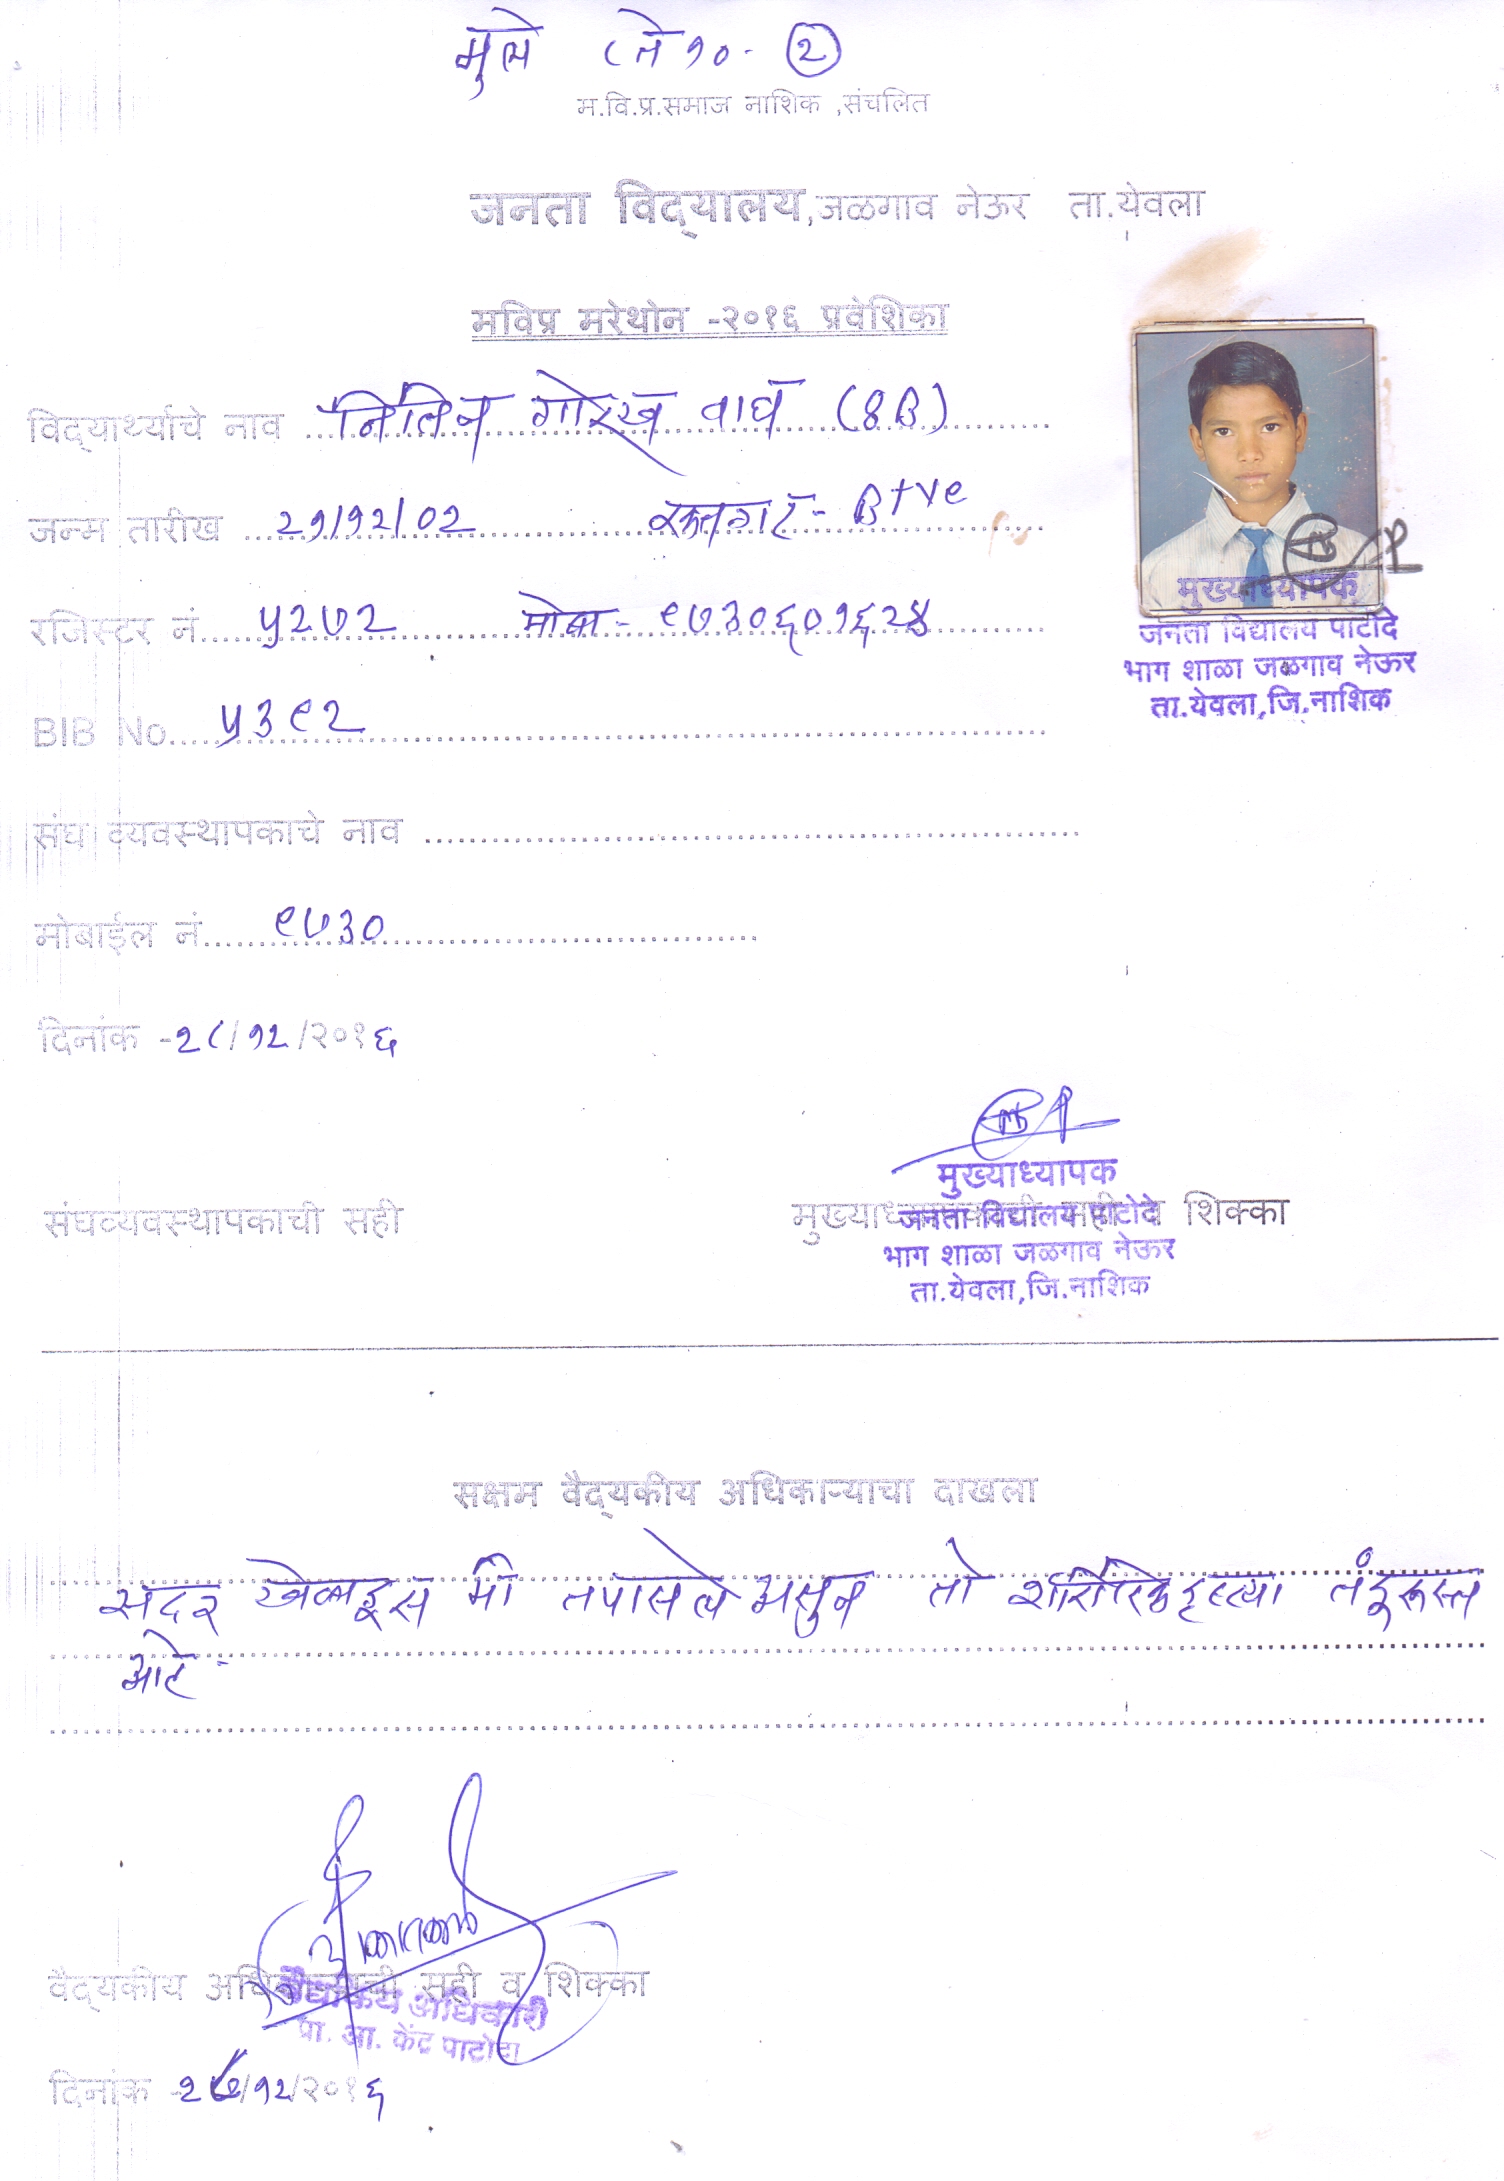 मुले ८ ते १० - २
म.वि.प्र.समाज नाशिक ,संचलित
जनता विद्यालय,जळगाव नेऊर ता.येवला
मविप्र मॅरेथोन -२०१६ प्रवेशिका
विद्यार्थ्याचे नाव नितिन गोरख वाघ (8B)
जन्म तारीख २१/१२/०२ रक्तगट - B+ve
रजिस्टर नं. ५२७२ मोबा - ९७३०६०१६२४
मुख्याध्यापक
जनता विद्यालय पाटोदे
भाग शाळा जळगाव नेऊर
ता.येवला,जि.नाशिक
BIB No. ५३९२
संघ व्यवस्थापकाचे नाव
मोबाईल नं. ९७३०
दिनांक -२८/१२/२०१६
मुख्याध्यापक
संघव्यवस्थापकाची सही मुख्याध्यापकाची सही व शिक्का
जनता विद्यालय पाटोदे
भाग शाळा जळगाव नेऊर
ता.येवला,जि.नाशिक
सक्षम वैद्यकीय अधिकाऱ्याचा दाखला
सदर खेळाडूस मी तपासले असुन तो शारीरिकदृष्ट्या तंदुरूस्त
आहे -
वैद्यकीय अधिकाऱ्याची सही व शिक्का
वैद्यकिय अधिकारी
प्रा. आ. केंद्र पाटोदा
दिनांक - /१२/२०१६